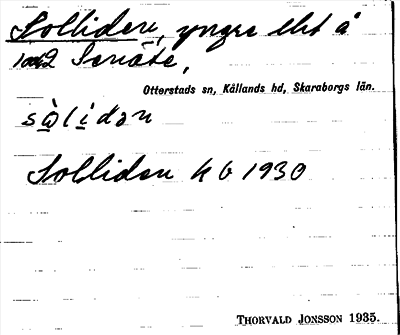 Solliden, yngre lht å
1 och 2 Senäte,
Otterstads sn, Kållands hd, Skaraborgs län.
sòlídən
Solliden kb 1930
THORVALD JONSSON 1935.